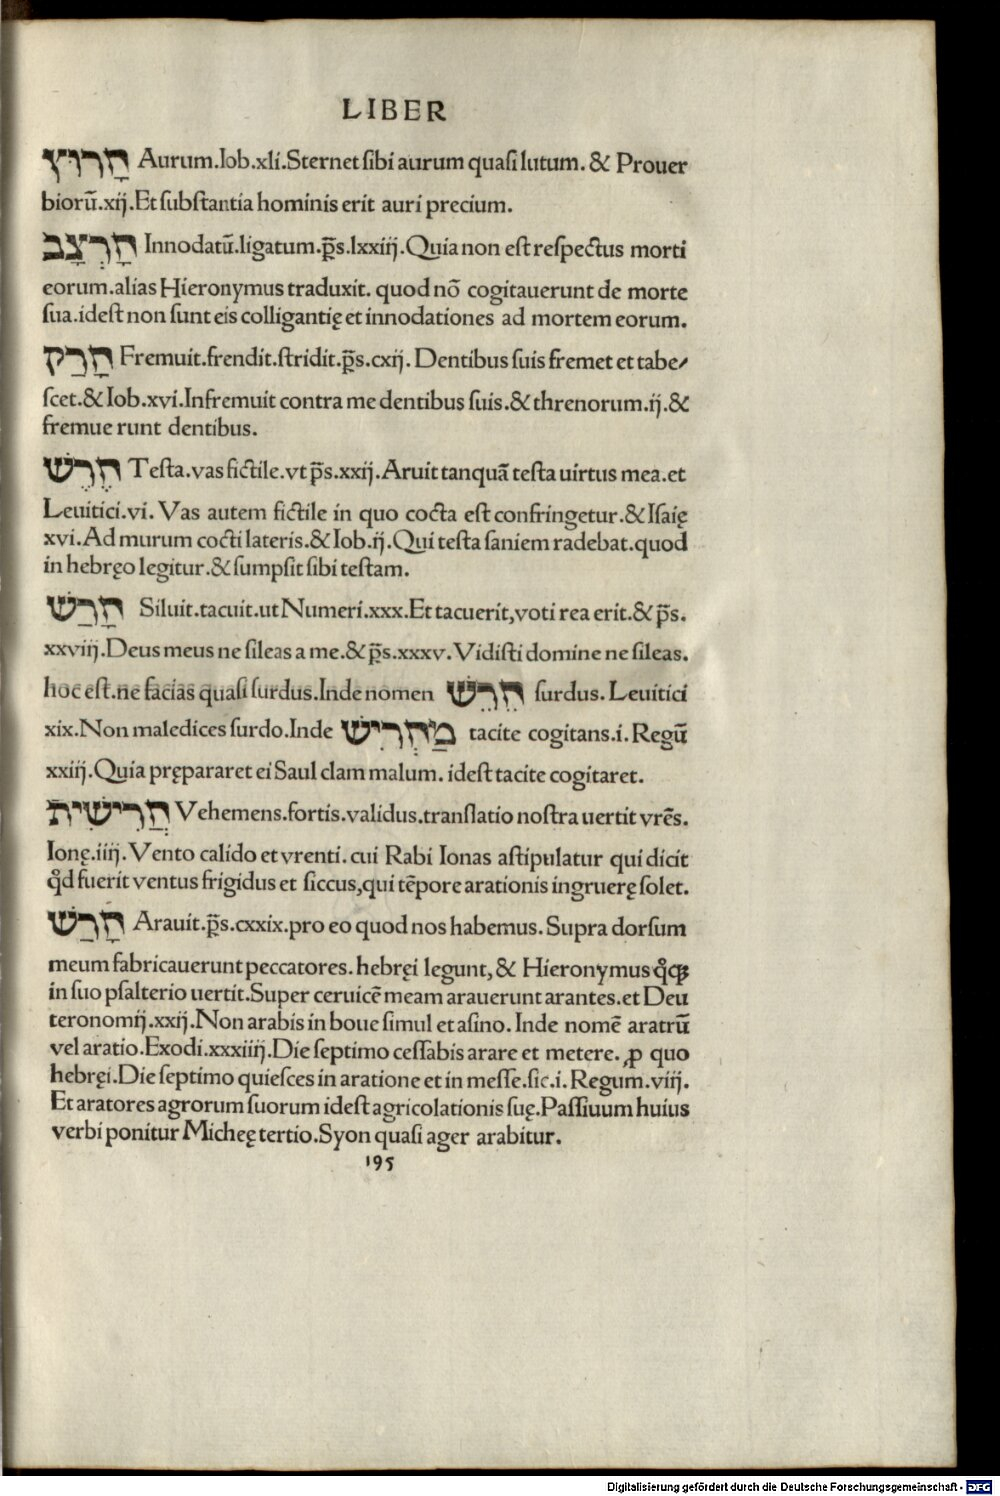 LIBER
חָרוּץ Aurum.Iob.xli.Sternet sibi aurum quasi lutum. & Prouer
biorū.xij.Et substantia hominis erit auri precium.
חָרְצָב Innodatū.ligatum.p̄s.lxxiij.Quia non est respectus morti
eorum.alias Hieronymus traduxit. quod nō cogitauerunt de morte
sua.idest non sunt eis colligantię et innodationes ad mortem eorum.
חָרַק Fremuit.frendit.stridit.p̄s.cxij. Dentibus suis fremet et tabe⸗
scet.& Iob.xvi.Infremuit contra me dentibus suis.& threnorum.ij.&
fremue runt dentibus.
חֶרֶשׁ Testa.vas fictile.vt p̄s.xxij.Aruit tanquā testa uirtus mea.et
Leuitici.vi. Vas autem fictile in quo cocta est confringetur.& Isaię
xvi.Ad murum cocti lateris.& Iob.ij.Qui testa saniem radebat.quod
in hebręo legitur.& sumpsit sibi testam.
חָרַשׁ Siluit.tacuit.ut Numeri.xxx.Et tacuerit,voti rea erit.& p̄s.
xxviij.Deus meus ne sileas a me.& p̄s.xxxv.Vidisti domine ne sileas.
hoc est.ne facias quasi surdus.Inde nomen חֵרֵשׁ surdus. Leuitici
xix.Non maledices surdo.Inde מַחְרִישׁ tacite cogitans.i.Regū
xxiij.Quia prępararet ei Saul clam malum. idest tacite cogitaret.
חֲרִישִׁית Vehemens.fortis.validus.translatio nostra uertit vrēs.
Ionę.iiij.Vento calido et vrenti.cui Rabi Ionas astipulatur qui dicit
qd̄ fuerit ventus frigidus et siccus,qui tēpore arationis ingruerę solet.
חָרַשׁ Arauit.p̄s.cxxix.pro eo quod nos habemus. Supra dorsum
meum fabricauerunt peccatores. hebręi legunt,& Hieronymus qꝫqꝫ
in suo psalterio uertit.Super ceruicē meam arauerunt arantes.et Deu
teronomij.xxij.Non arabis in boue simul et asino. Inde nomē aratrū
vel aratio.Exodi.xxxiiij.Die septimo cessabis arare et metere. ꝓ quo
hebręi.Die septimo quiesces in aratione et in messe.sic.i.Regum.viij.
Et aratores agrorum suorum idest agricolationis suę.Passiuum huius
verbi ponitur Micheę tertio.Syon quasi ager arabitur.
195
Digitalisierung gefördert durch die Deutsche Forschungsgemeinschaft - DFG